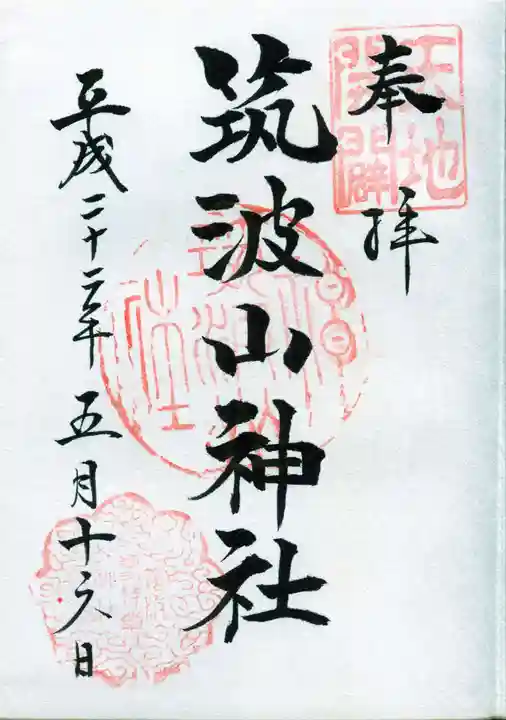 奉拝
天地
開闢
筑波山神社
平成二十二年五月十六日